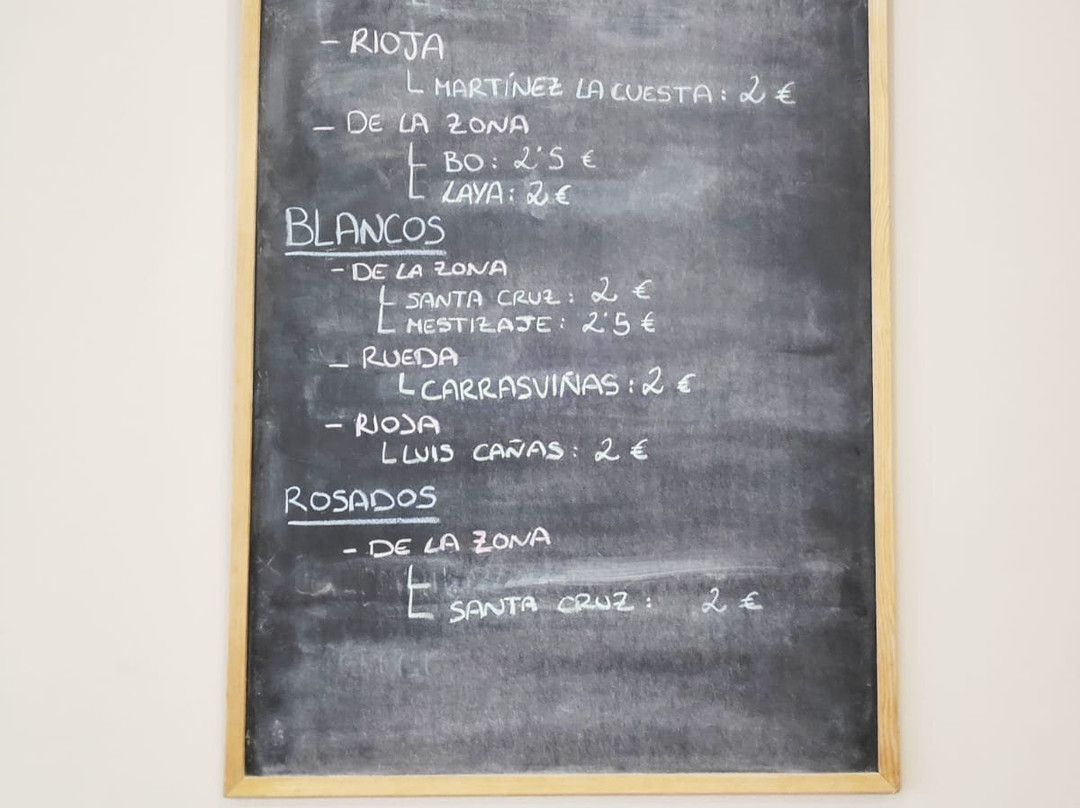 - RIOJA
MARTÍNEZ LA CUESTA: 2 €
- DE LA ZONA
BO: 2'5 €
LAYA: 2 €
BLANCOS
- DE LA ZONA
SANTA CRUZ: 2 €
MESTIZAJE: 2'5 €
- RUEDA
CARRASVIÑAS: 2 €
- RIOJA
LUIS CAÑAS: 2 €
ROSADOS
- DE LA ZONA
SANTA CRUZ: 2 €